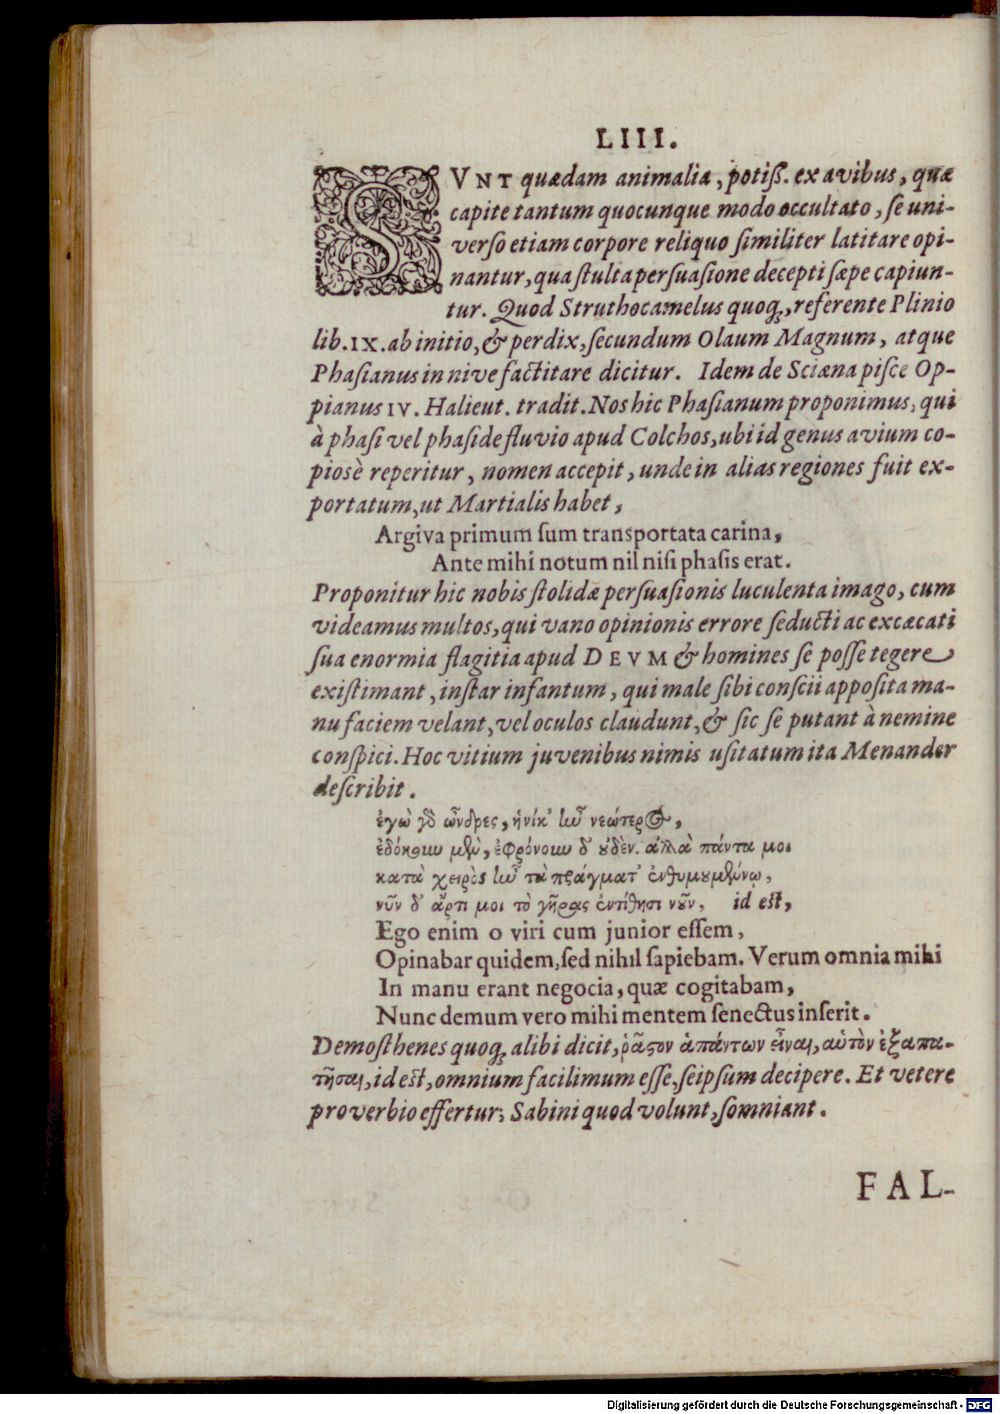 LIII.
SVNT quædam animalia, potiß. ex avibus, quæ
capite tantum quocunque modo occultato, se uni-
verso etiam corpore reliquo similiter latitare opi-
nantur, qua stulta persuasione decepti sæpe capiun-
tur. Quod Struthocamelus quoq;, referente Plinio
lib. IX. ab initio, & perdix, secundum Olaum Magnum, atque
Phasianus in nive factitare dicitur. Idem de Sciæna pisce Op-
pianus IV. Halieut. tradit. Nos hic Phasianum proponimus, qui
à phasi vel phaside fluvio apud Colchos, ubi id genus avium co-
piosè reperitur, nomen accepit, unde in alias regiones fuit ex-
portatum, ut Martialis habet,
Argiva primum sum transportata carina,
Ante mihi notum nil nisi phasis erat.
Proponitur hic nobis stolidæ persuasionis luculenta imago, cum
videamus multos, qui vano opinionis errore seducti ac excæcati
sua enormia flagitia apud DEVM & homines se posse tegere
existimant, instar infantum, qui male sibi conscii apposita ma-
nu faciem velant, vel oculos claudunt, & sic se putant à nemine
conspici. Hoc vitium juvenibus nimis usitatum ita Menander
describit.
ἐγὼ γδ ὦνδρες, ἡνίκ' ἰῶ νεώτερος,
ἐδόκουν μὲν, ἐφρόνουν δ' οὐδὲν. ἀλλὰ πάντα μοι
κατὰ χειρὸς ἰῶ τὰ πράγματ' ἐνθυμουμένῳ,
νῦν δ' ἄρτι μοι τὸ γῆρας ἐντίθησι νοῦν, id est,
Ego enim o viri cum junior essem,
Opinabar quidem, sed nihil sapiebam. Verum omnia mihi
In manu erant negocia, quæ cogitabam,
Nunc demum vero mihi mentem senectus inserit.
Demosthenes quoq; alibi dicit, ῥᾷστον ἁπάντων εἶναι, αὑτὸν ἐξαπα-
τῆσαι, id est, omnium facilimum esse, seipsum decipere. Et vetere
proverbio effertur; Sabini quod volunt, somniant.
FAL-
Digitalisierung gefördert durch die Deutsche Forschungsgemeinschaft - DFG